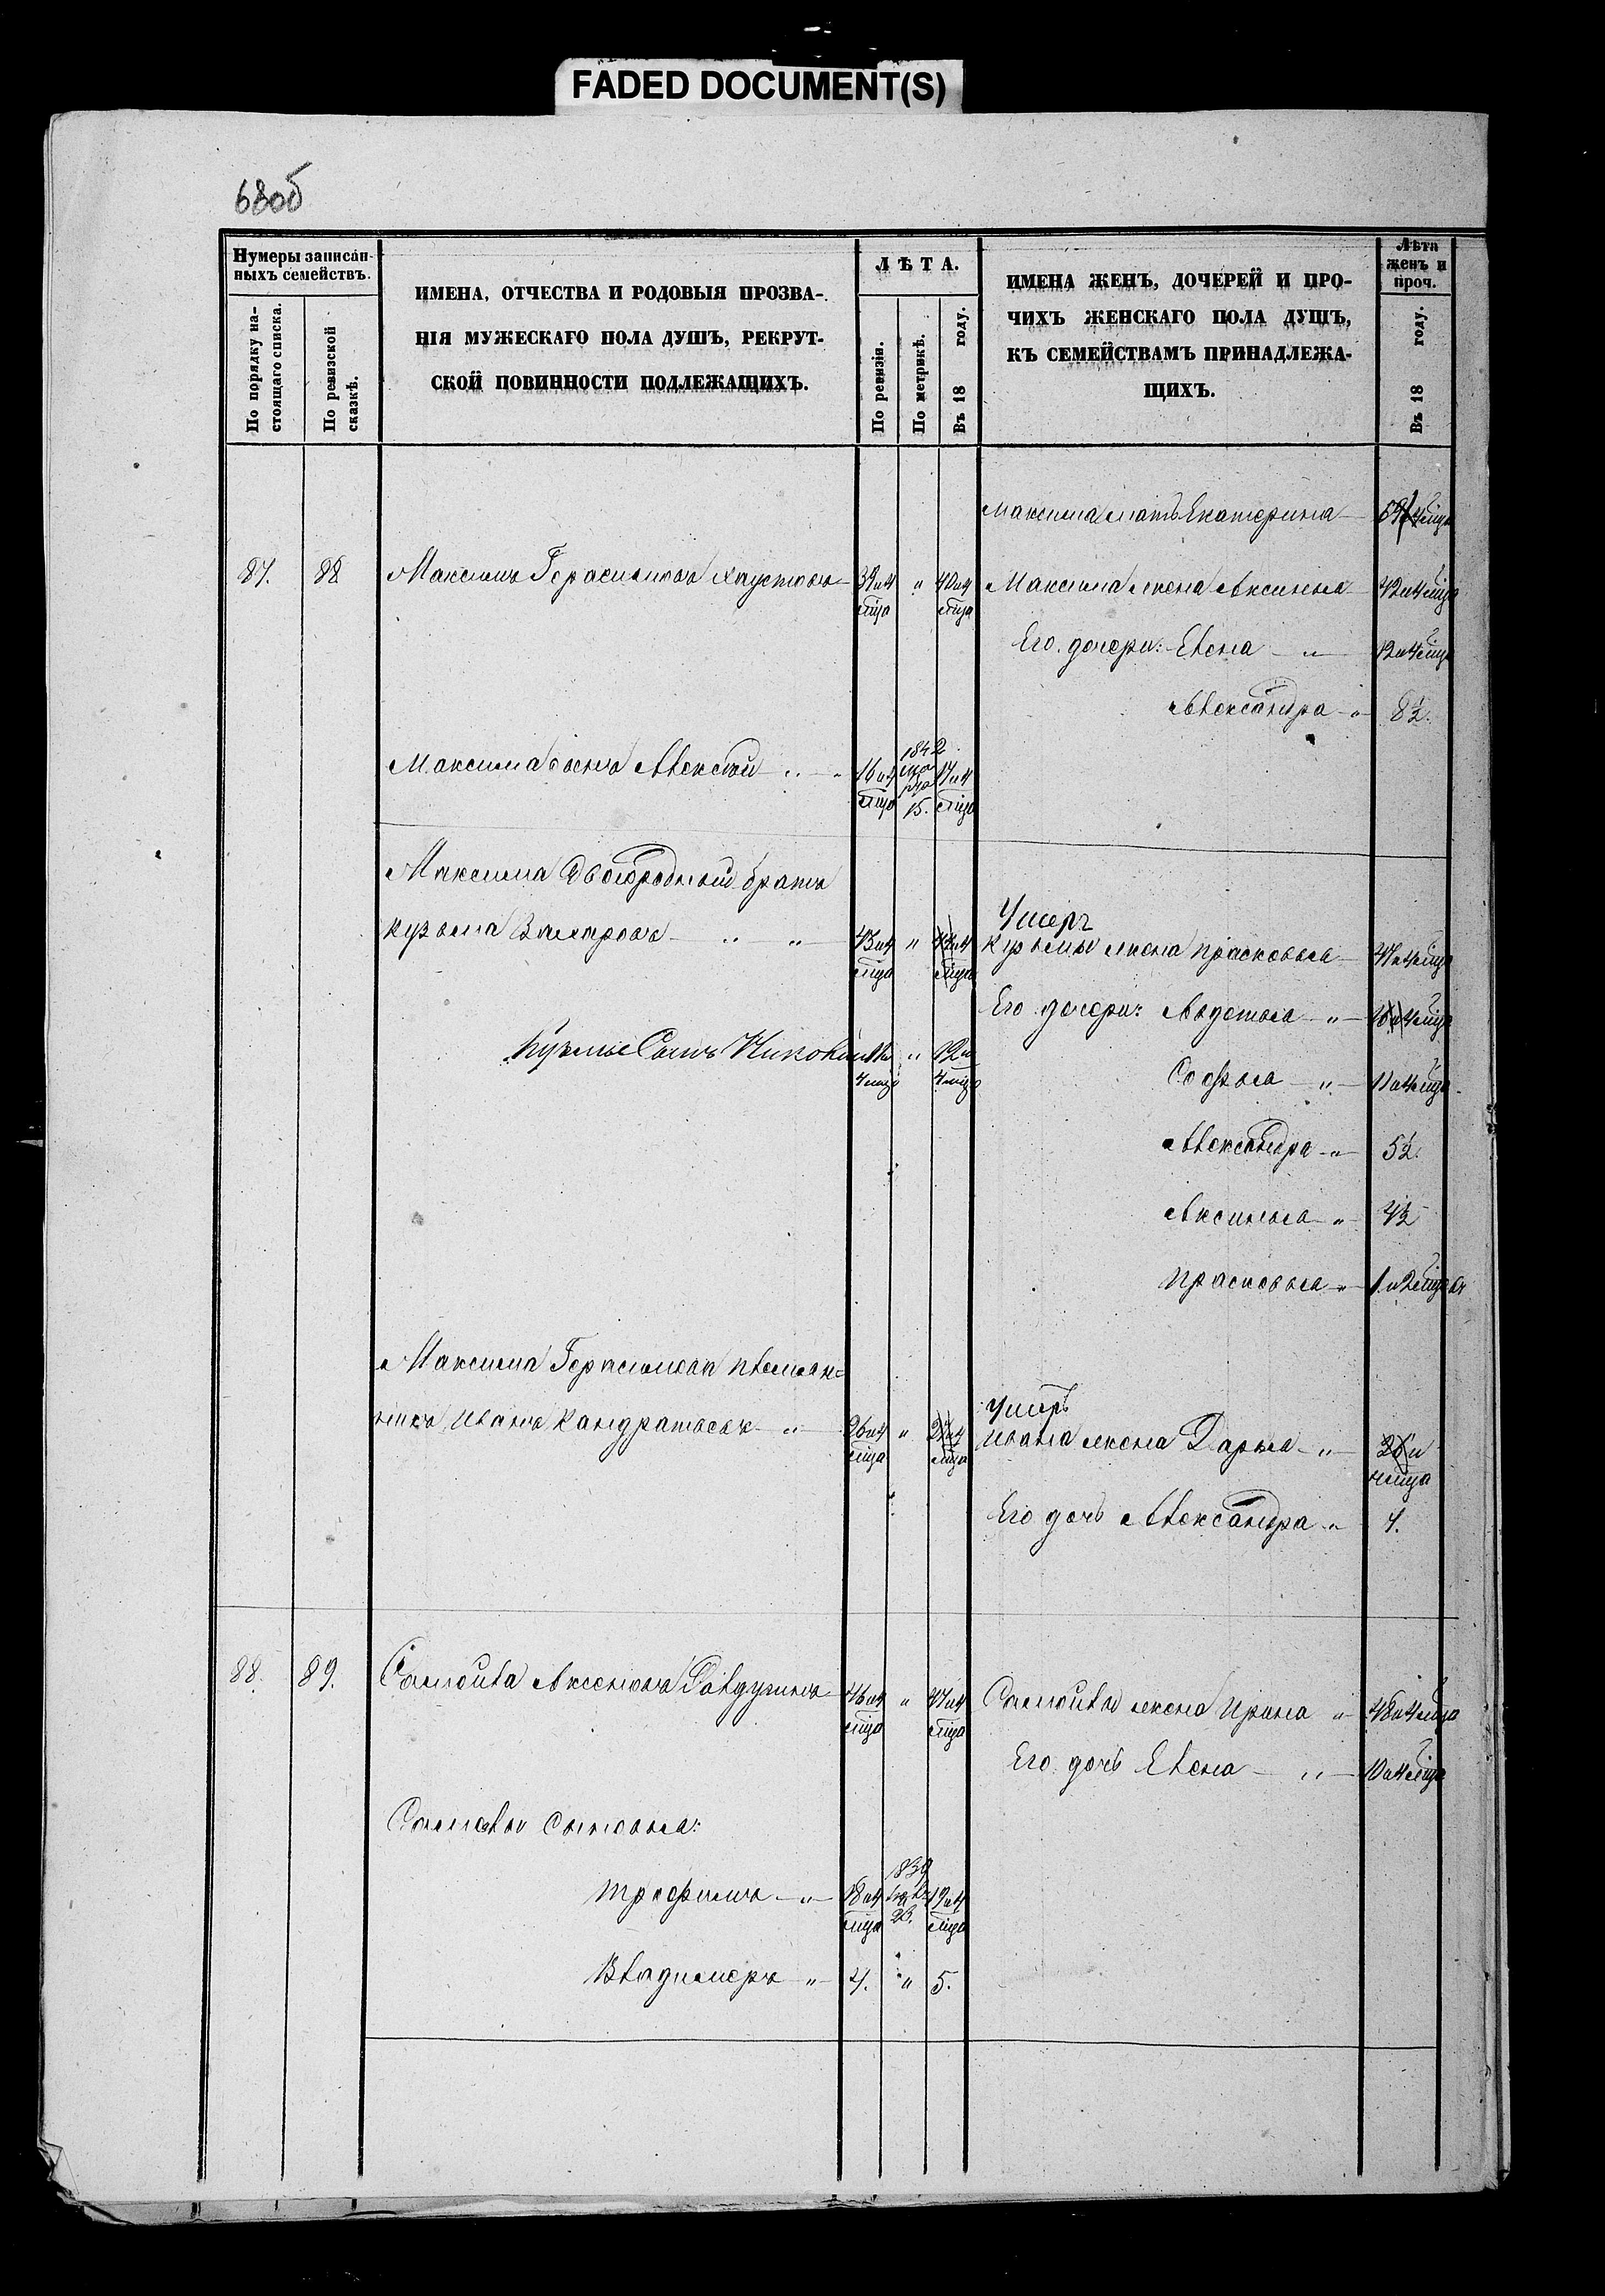 FADED DOCUMENT(S)
68об
Нумеры записан-
ныхъ семействъ.
По порядку на-
стоящаго списка.
По ревизской
сказкѣ.
ИМЕНА, ОТЧЕСТВА И РОДОВЫЯ ПРОЗВА-
НІЯ МУЖЕСКАГО ПОЛА ДУШЪ, РЕКРУТ-
СКОЙ ПОВИННОСТИ ПОДЛЕЖАЩИХЪ.
ЛѢТА.
По ревизіи.
По метрикѣ.
Въ 18 году.
ИМЕНА ЖЕНЪ, ДОЧЕРЕЙ И ПРО-
ЧИХЪ ЖЕНСКАГО ПОЛА ДУШЪ,
КЪ СЕМЕЙСТВАМЪ ПРИНАДЛЕЖА-
ЩИХЪ.
Лѣта
женъ и
проч.
Въ 18 году.
Максима мать Екатерина
87. 88 Максимъ Герасимовъ Хаустовъ 39 и 4 мца " 40 и 4 мца Максима жена Аксинья 42 и 4 мца
Его дочери: Елена " 12 и 4 мца
Александра " 8½.
Максима сынъ Алексѣй " " 16 и 4 мца 1842 марта 15. 17 и 4 мца
Максима Двоюродный братъ
Умеръ
Кузьма " " 43 и 4 мца " Кузьмы жена Прасковья 47 и 4 мца
Его дочери: Авдотья " 18 и 4 мца
Кузьмы Сынъ Никонъ " 12 и 4 мца
Софья " 11 и 4 мца
Александра " 5½.
Аксинья " 4½
Прасковья "
Максима Герасимова племян=
Умеръ
никъ Иванъ Кандратьевъ " 26 и 4 мца " 27 и 4 мца Ивана жена Дарья " 26 и 4 мца
Его дочь Александра " 4.
88. 89. Самойла Аксеновъ 46 и 4 мца " 47 и 4 мца Самойлы жена Ирина " 48 и 4 мца
Его дочь Елена " 10 и 4 мца
Самойлы сыновья:
Трофимъ " 18 и 4 мца 1839 23. 19 и 4 мца
Владимеръ " 4. " 5.